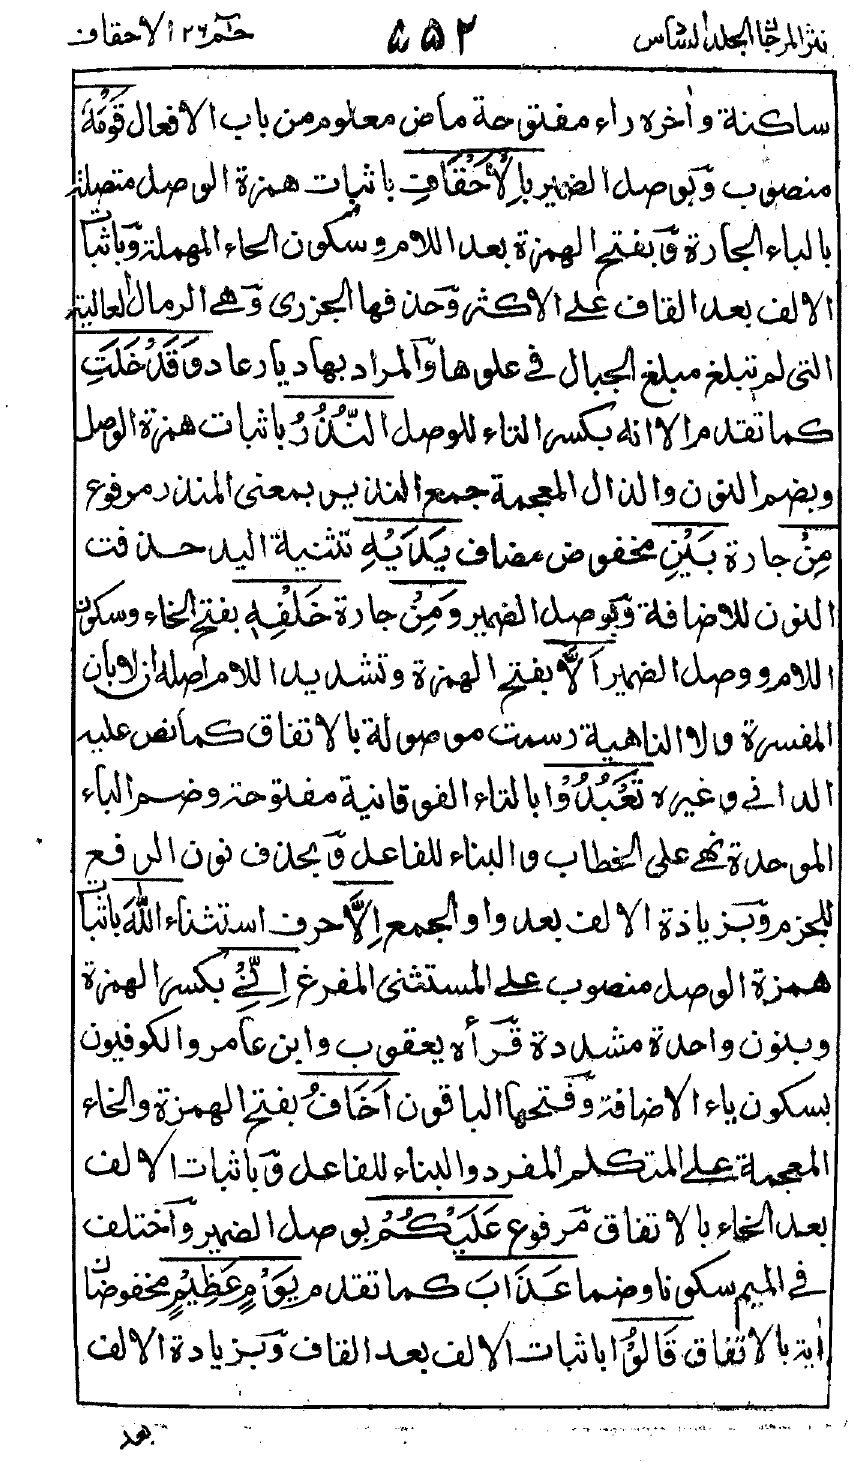 نثر المرجان المجلد السادس ۸۵۲ حٰمٓ ۲۶ الاحقاف
ساكنة واخره راء مفتوحة ماض معلوم من باب الافعال قَوْمَهٗ
منصوب وبوصل الضمير بِالْاَحْقَافِ باثبات همزة الوصل متصلة
بالباء الجارة وبفتح الهمزة بعد اللام وسكون الحاء المهملة وباثبات
الالف بعد القاف على الاكثر وحذفها الجزرى وهى الرمال العالية
التى لم تبلغ مبلغ الجبال فى علوها والمراد بها ديار عاد وَقَدْ خَلَتِ
كما تقدم الا انه بكسر التاء للوصل النُّذُرُ باثبات همزة الوصل
وبضم النون والذال المعجمة جمع النذير بمعنى المنذر مرفوع
مِنْ جارة بَيْنِ مخفوض مضاف يَدَيْهِ تثنية اليد حذفت
النون للاضافة وبوصل الضمير وَمِنْ جارة خَلْفِهٖ بفتح الخاء وسكون
اللام ووصل الضمير اَلَّا بفتح الهمزة وتشديد اللام اصله ان لا بان
المفسرة ولا الناهية رسمت موصولة بالاتفاق كما نص عليه
الدانى وغيره تَعْبُدُوْا بالتاء الفوقانية مفتوحة وضم الباء
الموحدة نهى على الخطاب والبناء للفاعل وبحذف نون الرفع
للجزم وبزيادة الالف بعد واو الجمع اِلَّا حرف استثناء اللّٰهَ باثبات
همزة الوصل منصوب على المستثنى المفرغ اِنِّىْ بكسر الهمزة
وبنون واحدة مشددة قرأه يعقوب وابن عامر والكوفيون
بسكون ياء الاضافة وفتحها الباقون اَخَافُ بفتح الهمزة والخاء
المعجمة على المتكلم المفرد والبناء للفاعل وباثبات الالف
بعد الخاء بالاتفاق مرفوع عَلَيْكُمْ بوصل الضمير واختلف
فى الميم سكونا وضما عَذَابَ كما تقدم يَوْمٍ عَظِيْمٍ مخفوضان
اية بالاتفاق قَالُوْا باثبات الالف بعد القاف وبزيادة الالف
بعد